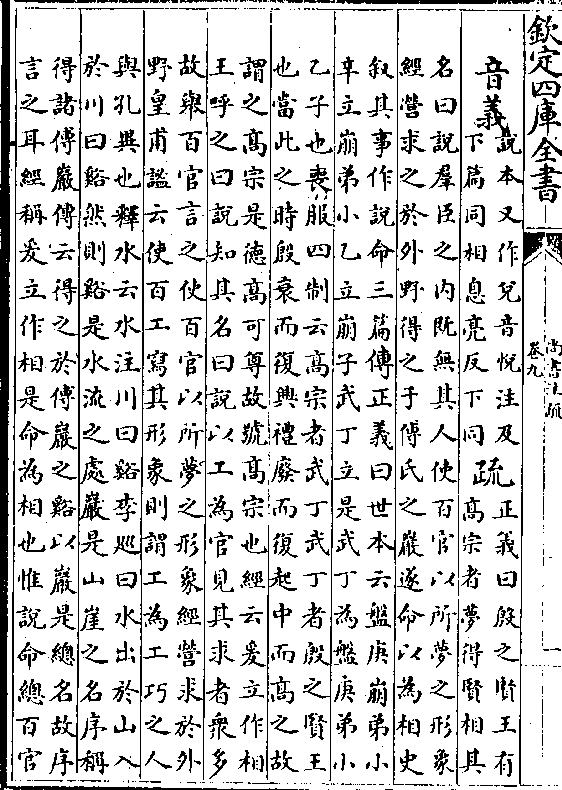 欽定四庫全書
尚書注疏
卷九
音義說本又作兌音悅注及
下篇同相息亮反下同
疏正義曰殷之賢王有
高宗者夢得賢相其
名曰說羣臣之內既無其人使百官以所夢之形象
經營求之於外野得之于傅氏之巖遂命以為相史
叙其事作說命三篇傳正義曰世本云盤庚崩弟小
辛立崩弟小乙立崩子武丁立是武丁為盤庚弟小
乙子也喪服四制云高宗者武丁武丁者殷之賢王
也當此之時殷衰而復興禮廢而復起中而高之故
謂之高宗是德高可尊故號高宗也經云爰立作相
王呼之曰說知其名曰說以工為官見其求者衆多
故舉百官言之使百官以所夢之形象經營求於外
野皇甫謐云使百工寫其形象則謂工為工巧之人
與孔異也釋水云水注川曰谿李巡曰水出於山入
於川曰谿然則谿是水流之處巖是山崖之名序稱
得諸傅巖傳云得之於傅巖之谿以巖是總名故序
言之耳經稱爰立作相是命為相也惟說命總百官